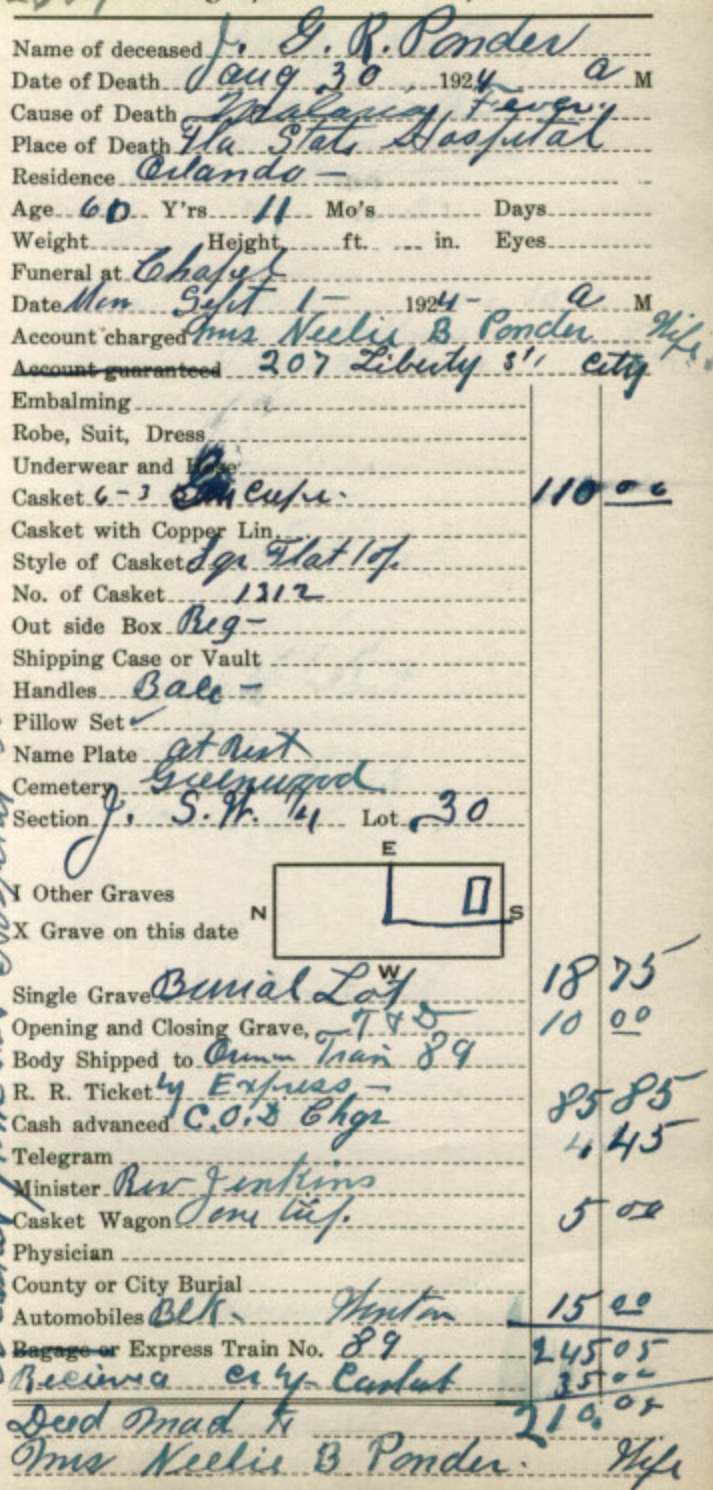 Name of deceased J. G. R. Ponder
Date of Death Aug 30 1924 a M
Cause of Death Malaria Fever.
Place of Death Fla State Hospital
Residence Orlando -
Age 60 Y'rs 11 Mo's Days
Weight Height ft. in. Eyes
Funeral at Chapel
Date Mon Sept 1 - 1924 - a M
Account charged Mrs Neelie B Ponder Wife.
Account guaranteed 207 Liberty St City
Embalming
Robe, Suit, Dress
Underwear and Hose
Casket 6-3 Crepe. 110 00
Casket with Copper Lin
Style of Casket Sqr Flat Top.
No. of Casket 1312
Out side Box Reg -
Shipping Case or Vault
Handles Bale -
Pillow Set ✓
Name Plate At Rest
Cemetery Greenwood
Section J. S.W. 1/4 Lot 30
E
I Other Graves
N S
X Grave on this date
W
Single Grave Burial Lot 18 75
Opening and Closing Grave, T & D 10 00
Body Shipped to Train 89
R. R. Ticket by Express - 85 85
Cash advanced C.O.D Chgs 4 45
Telegram
Minister Rev Jenkins
Casket Wagon one trip. 5 00
Physician
County or City Burial
Automobiles Blk - Winton 15 00
Bagage or Express Train No. 89 245 05
Recieved 35 00
Deed Mad to 210.05
Mrs Neelie B Ponder. Wife